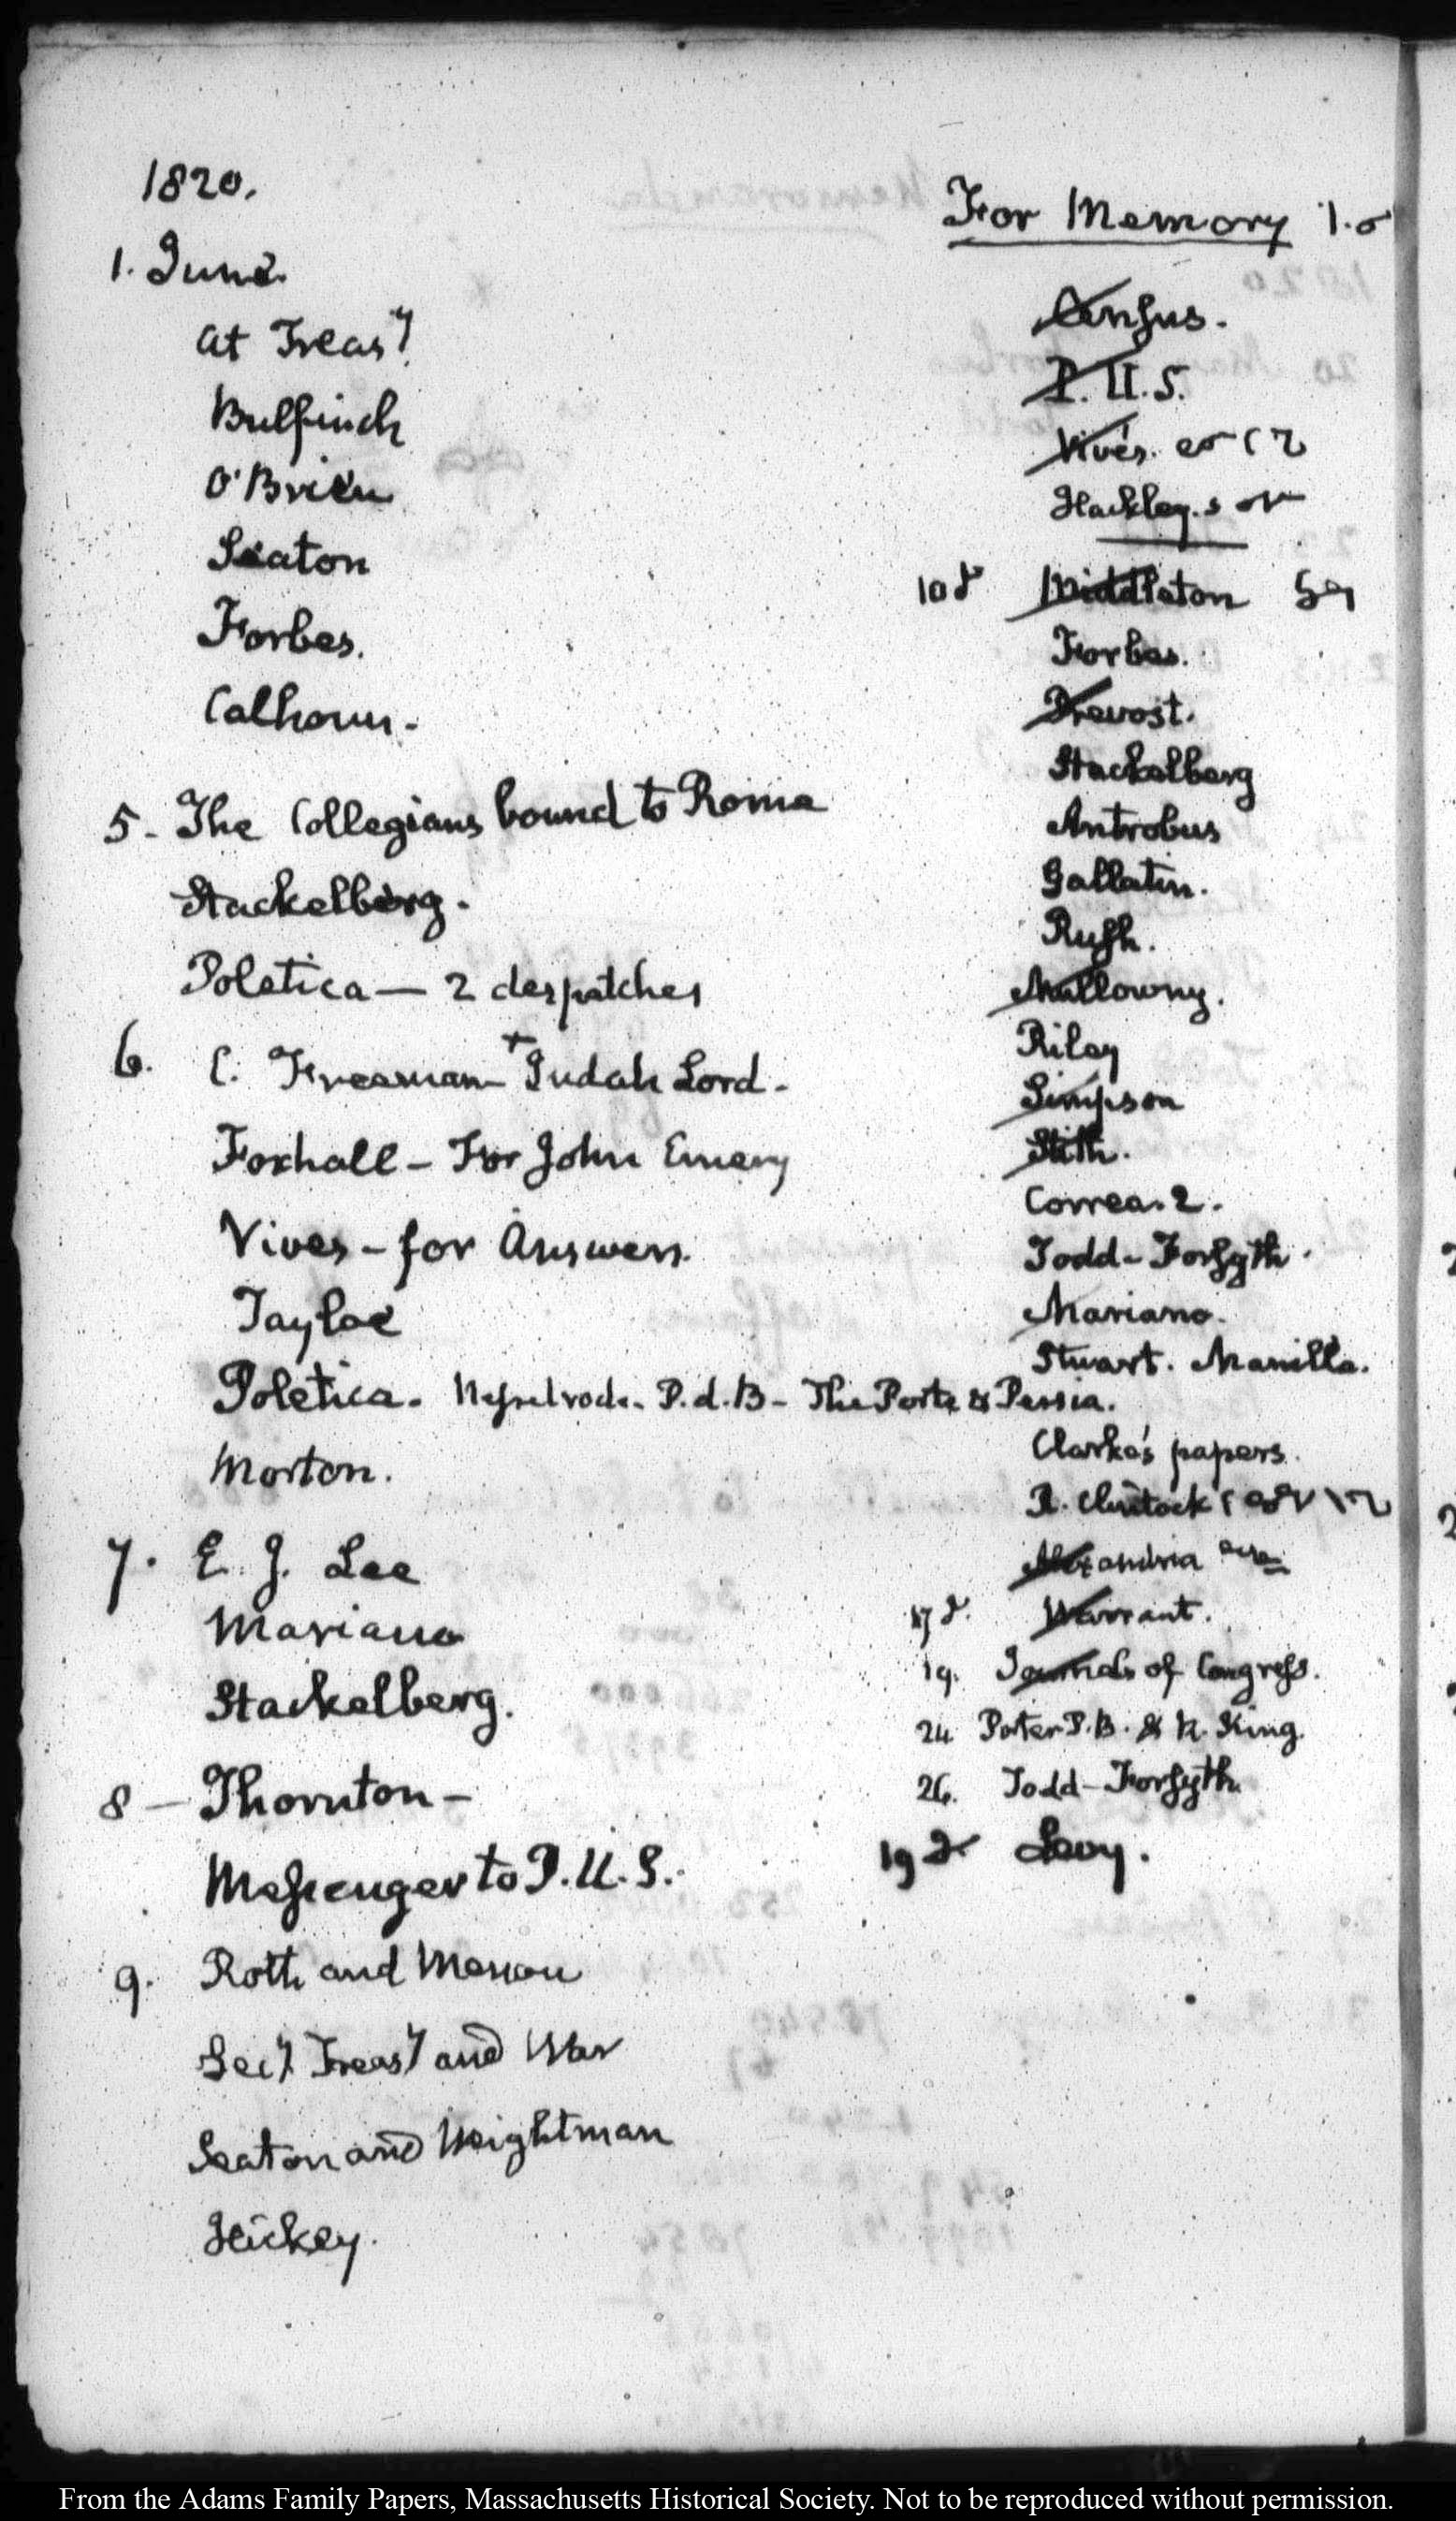 1820.
1. June.
at Treasy.
Bulfinch
O'Brien
Seaton
Forbes.
Calhoun.
5 - The Collegians bound to Rome
Stackelberg.
Poletica — 2 despatches
6. C. Freeman + Judah Lord.
Foxhall - For John Emery
Vives - for Answers.
Tayloe
Poletica. Nesselrode. P.d.B - The Porte & Persia.
Morton.
7. E. J. Lee
Mariano
Stackelberg.
8 - Thornton -
Messenger to P.U.S.
9. Roth and Menou
Secy Treasy and War
Seaton and Weightman
Hickey.
For Memory
Census.
P. U.S.
Vivés.
Hackley.s
10 d Middleton
Forbes.
Prevost.
Stackelberg
Antrobus
Gallatin.
Rush.
Mullowny.
Riley
Simpson
Stith.
Correa. 2.
Todd - Forsyth.
Mariano.
Stuart. Manilla.
Clarke's papers.
Alexandria
17 d. Warrant.
19. Journals of Congress.
24 Porter P.B. & R. King.
26. Todd - Forsyth.
19 d Levy.
From the Adams Family Papers, Massachusetts Historical Society. Not to be reproduced without permission.